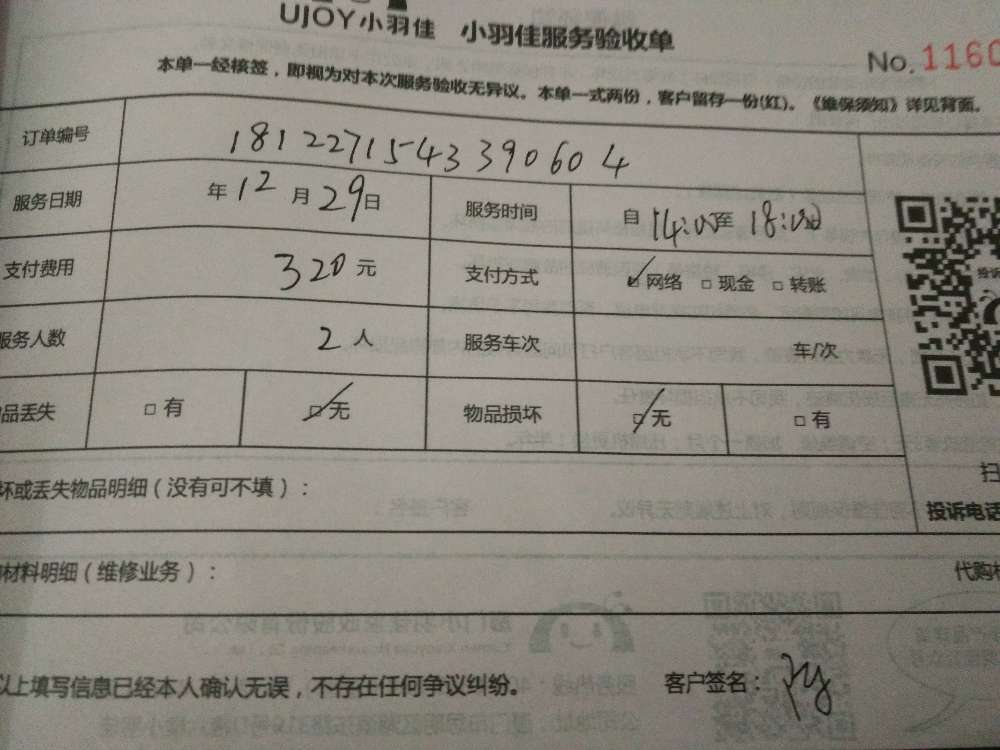 UJOY小羽佳 小羽佳服务验收单
No. 1160
本单一经核签，即视为对本次服务验收无异议。本单一式两份，客户留存一份(红)。《维保须知》详见背面。
订单编号 18122715433390604
服务日期 年12月29日 服务时间 自14:00至18:00
支付费用 320元 支付方式 ☑网络 □现金 □转账
服务人数 2人 服务车次 车/次
品丢失 □有 ☑无 物品损坏 ☑无 □有
坏或丢失物品明细（没有可不填）：
扫
投诉电话
材料明细（维修业务）：
代购
以上填写信息已经本人确认无误，不存在任何争议纠纷。 客户签名：